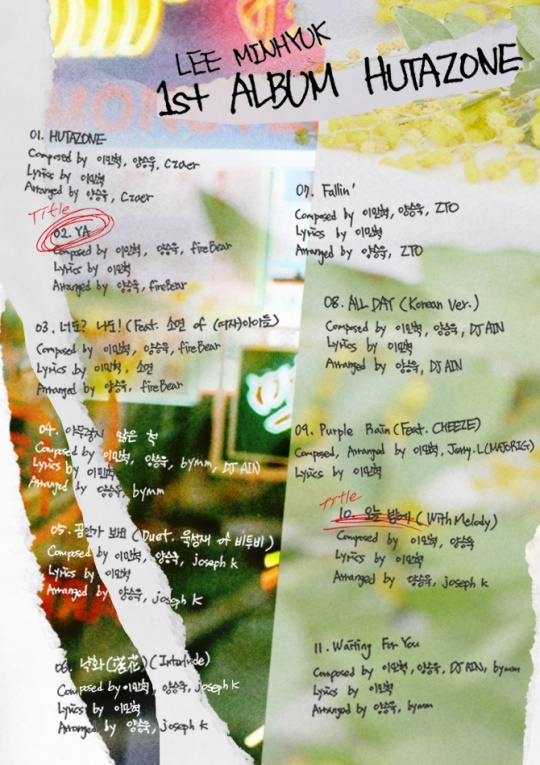 LEE MINHYUK
1st ALBUM HUTAZONE
01. HUTAZONE
Composed by 이민혁, 양승욱, CZAER
Lyrics by 이민혁
Arranged by 양승욱, CZAER
Title
02. YA
Composed by 이민혁, 양승욱, fireBear
Lyrics by 이민혁
Arranged by 양승욱, fireBear
03. 너도? 나도! (Feat. 소연 of (여자)아이들)
Composed by 이민혁, 양승욱, fireBear
Lyrics by 이민혁, 소연
Arranged by 양승욱, fireBear
04. 아무렇지 않은 척
Composed by 이민혁, 양승욱, bymm, DJ AIN
Lyrics by 이민혁
Arranged by 양승욱, bymm
05. 꿈인가 봐요 (Duet. 육성재 of 비투비)
Composed by 이민혁, 양승욱, joseph k
Lyrics by 이민혁
Arranged by 양승욱, joseph k
06. 낙화(落花) (Interlude)
Composed by 이민혁, 양승욱, joseph k
Lyrics by 이민혁
Arranged by 양승욱, joseph k
07. Fallin'
Composed by 이민혁, 양승욱, ZTO
Lyrics by 이민혁
Arranged by 양승욱, ZTO
08. ALL DAY (Korean Ver.)
Composed by 이민혁, 양승욱, DJ AIN
Lyrics by 이민혁
Arranged by 양승욱, DJ AIN
09. Purple Rain (Feat. CHEEZE)
Composed, Arranged by 이민혁, Jerry.L(MAJORIGI)
Lyrics by 이민혁
Title
10. 오늘 밤에 (With Melody)
Composed by 이민혁, 양승욱
Lyrics by 이민혁
Arranged by 양승욱, joseph k
11. Waiting For You
Composed by 이민혁, 양승욱, DJ AIN, bymm
Lyrics by 이민혁
Arranged by 양승욱, bymm